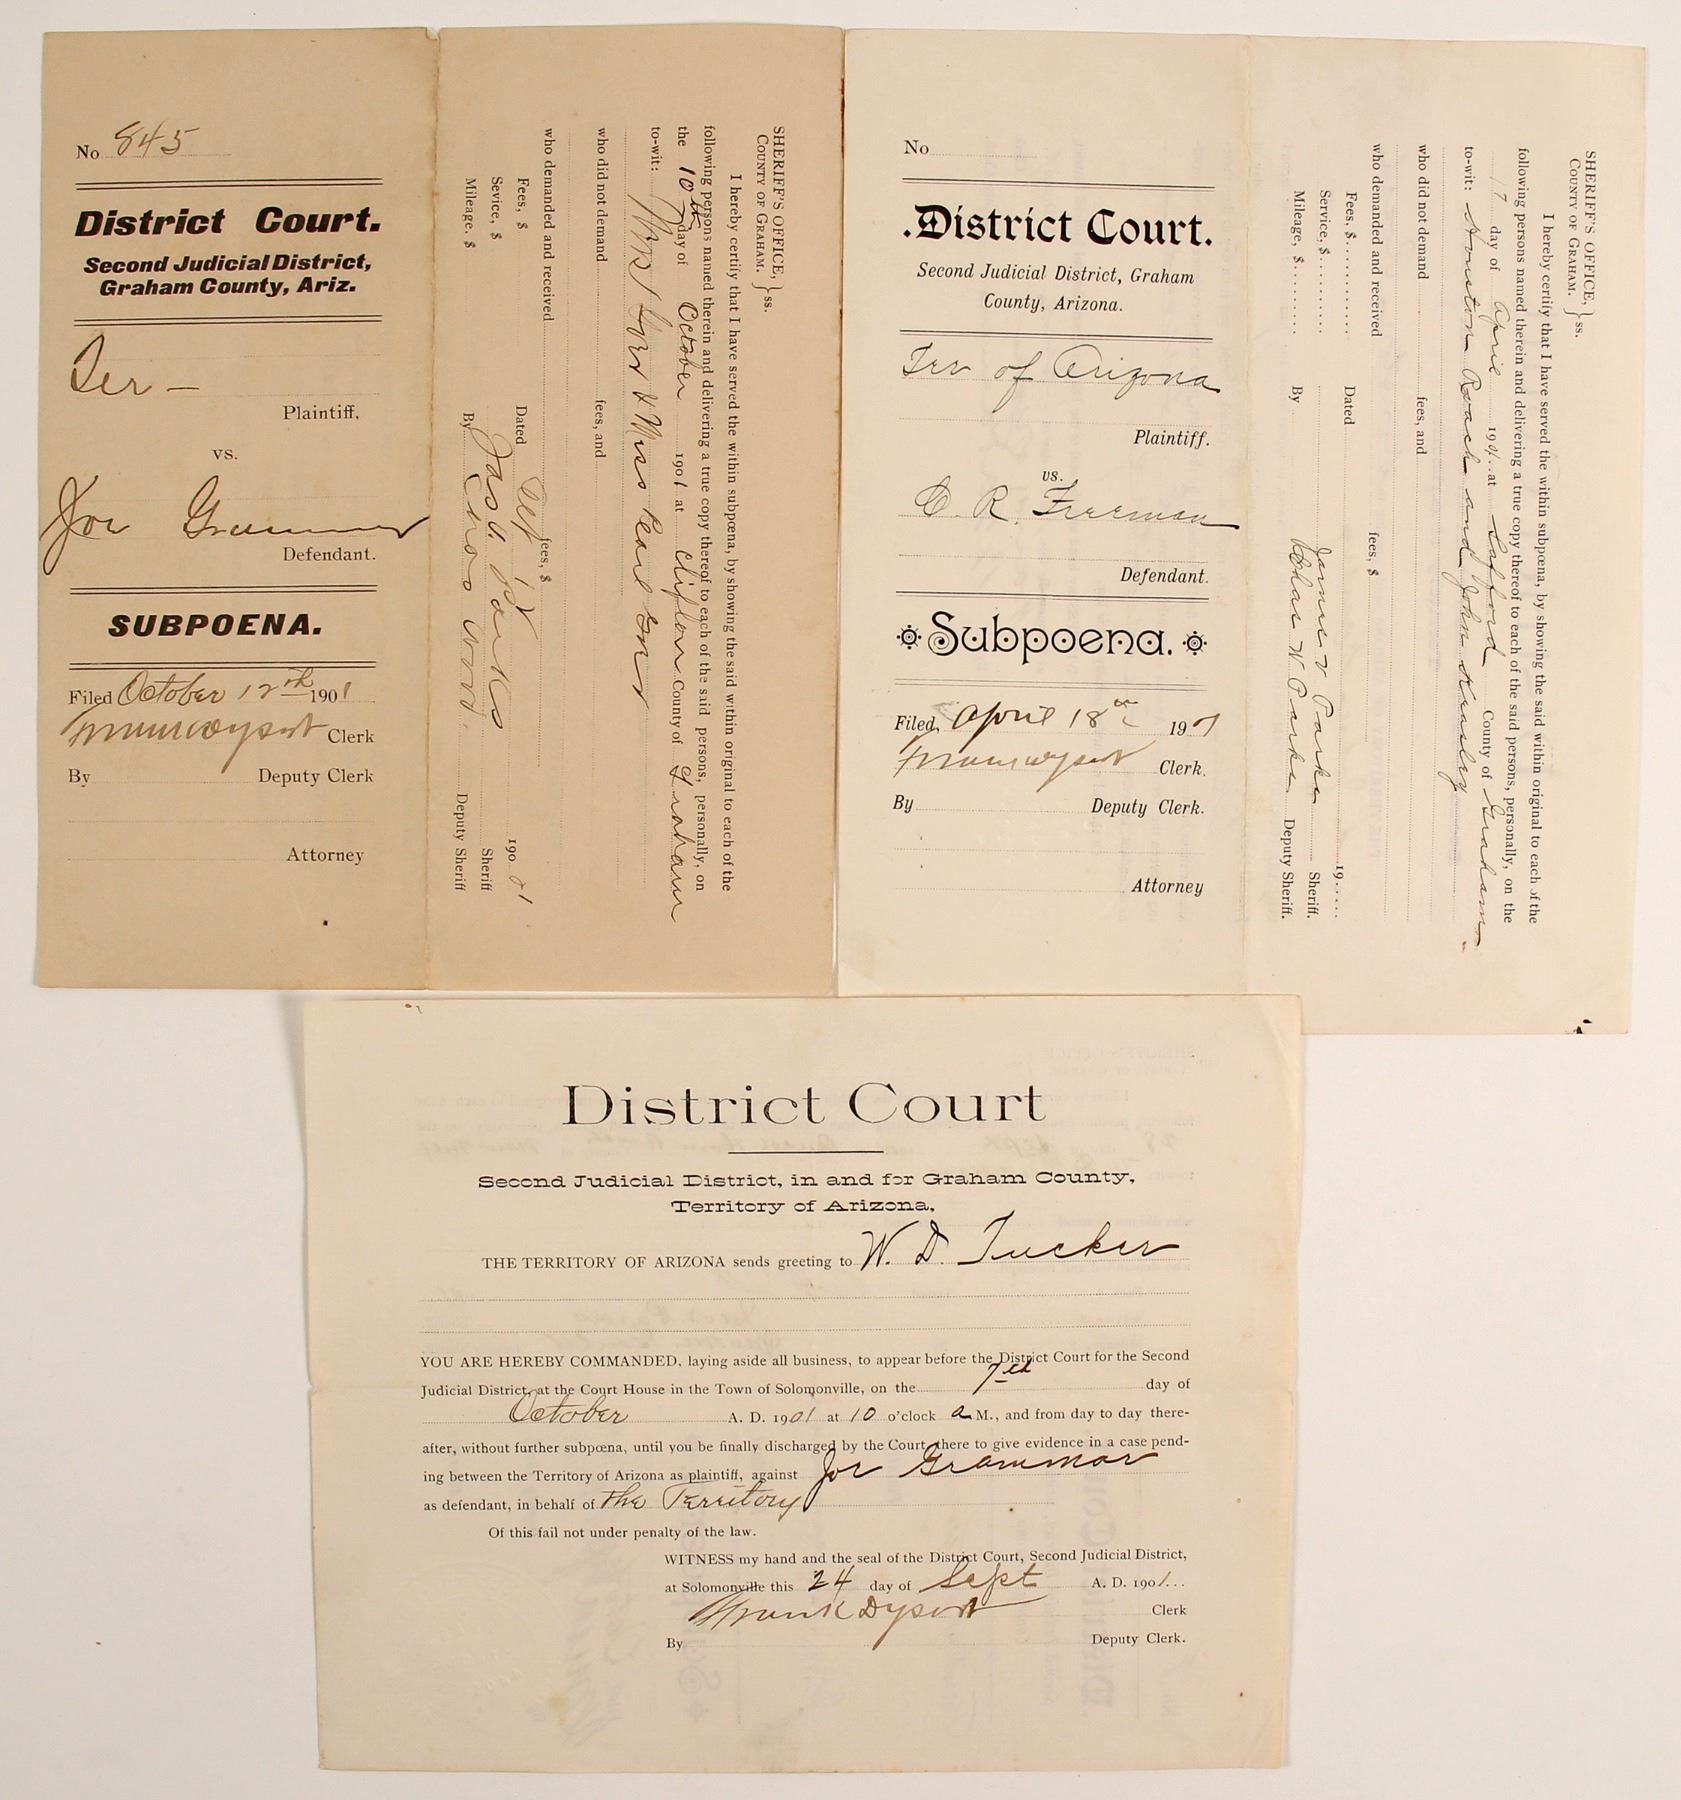 No 845
District Court.
Second Judicial District,
Graham County, Ariz.
Ter —
Plaintiff,
vs.
Joe Grammer
Defendant.
SUBPOENA.
Filed October 12th 1901
Clerk
By Deputy Clerk
Attorney
SHERIFF'S OFFICE,
COUNTY OF GRAHAM. } ss.
I hereby certify that I have served the within subpœna, by showing the said within original to each of the
following persons named therein and delivering a true copy thereof to each of the said persons, personally, on
the 10th day of October 1901 at Clifton County of Graham
to-wit: & Miss Pearl
who did not demand fees, and
who demanded and received fees, $
Fees, $ Dated 190 1
Sevice, $ Jas V. Parks Sheriff
Mileage. $ By Deputy Sheriff
No
.District Court.
Second Judicial District, Graham
County, Arizona.
Ter of Arizona
Plaintiff.
vs.
C. R. Freeman
Defendant.
Subpoena.
Filed, April 18th 1901
Clerk.
By Deputy Clerk.
Attorney
SHERIFF'S OFFICE,
COUNTY OF GRAHAM. } ss.
I hereby certify that I have served the within subpœna, by showing the said within original to each of the
following persons named therein and delivering a true copy thereof to each of the said persons, personally, on the
17 day of April 1901 at Safford County of Graham
to-wit: Houston Roach and John
who did not demand fees, and
who demanded and received fees, $
Fees, $ Dated 19
Service, $ James V Parks Sheriff.
Mileage, $ By Chas W Parks Deputy Sheriff.
District Court
Second Judicial District, in and for Graham County,
Territory of Arizona,
THE TERRITORY OF ARIZONA sends greeting to W. D. Tucker
YOU ARE HEREBY COMMANDED, laying aside all business, to appear before the District Court for the Second
Judicial District, at the Court House in the Town of Solomonville, on the 7th day of
October A. D. 1901 at 10 o'clock a M., and from day to day there-
after, without further subpœna, until you be finally discharged by the Court, there to give evidence in a case pend-
ing between the Territory of Arizona as plaintiff, against Joe Grammar
as defendant, in behalf of the Territory
Of this fail not under penalty of the law.
WITNESS my hand and the seal of the District Court, Second Judicial District,
at Solomonville this 24 day of Sept A. D. 1901
Frank Dysart Clerk
By Deputy Clerk.